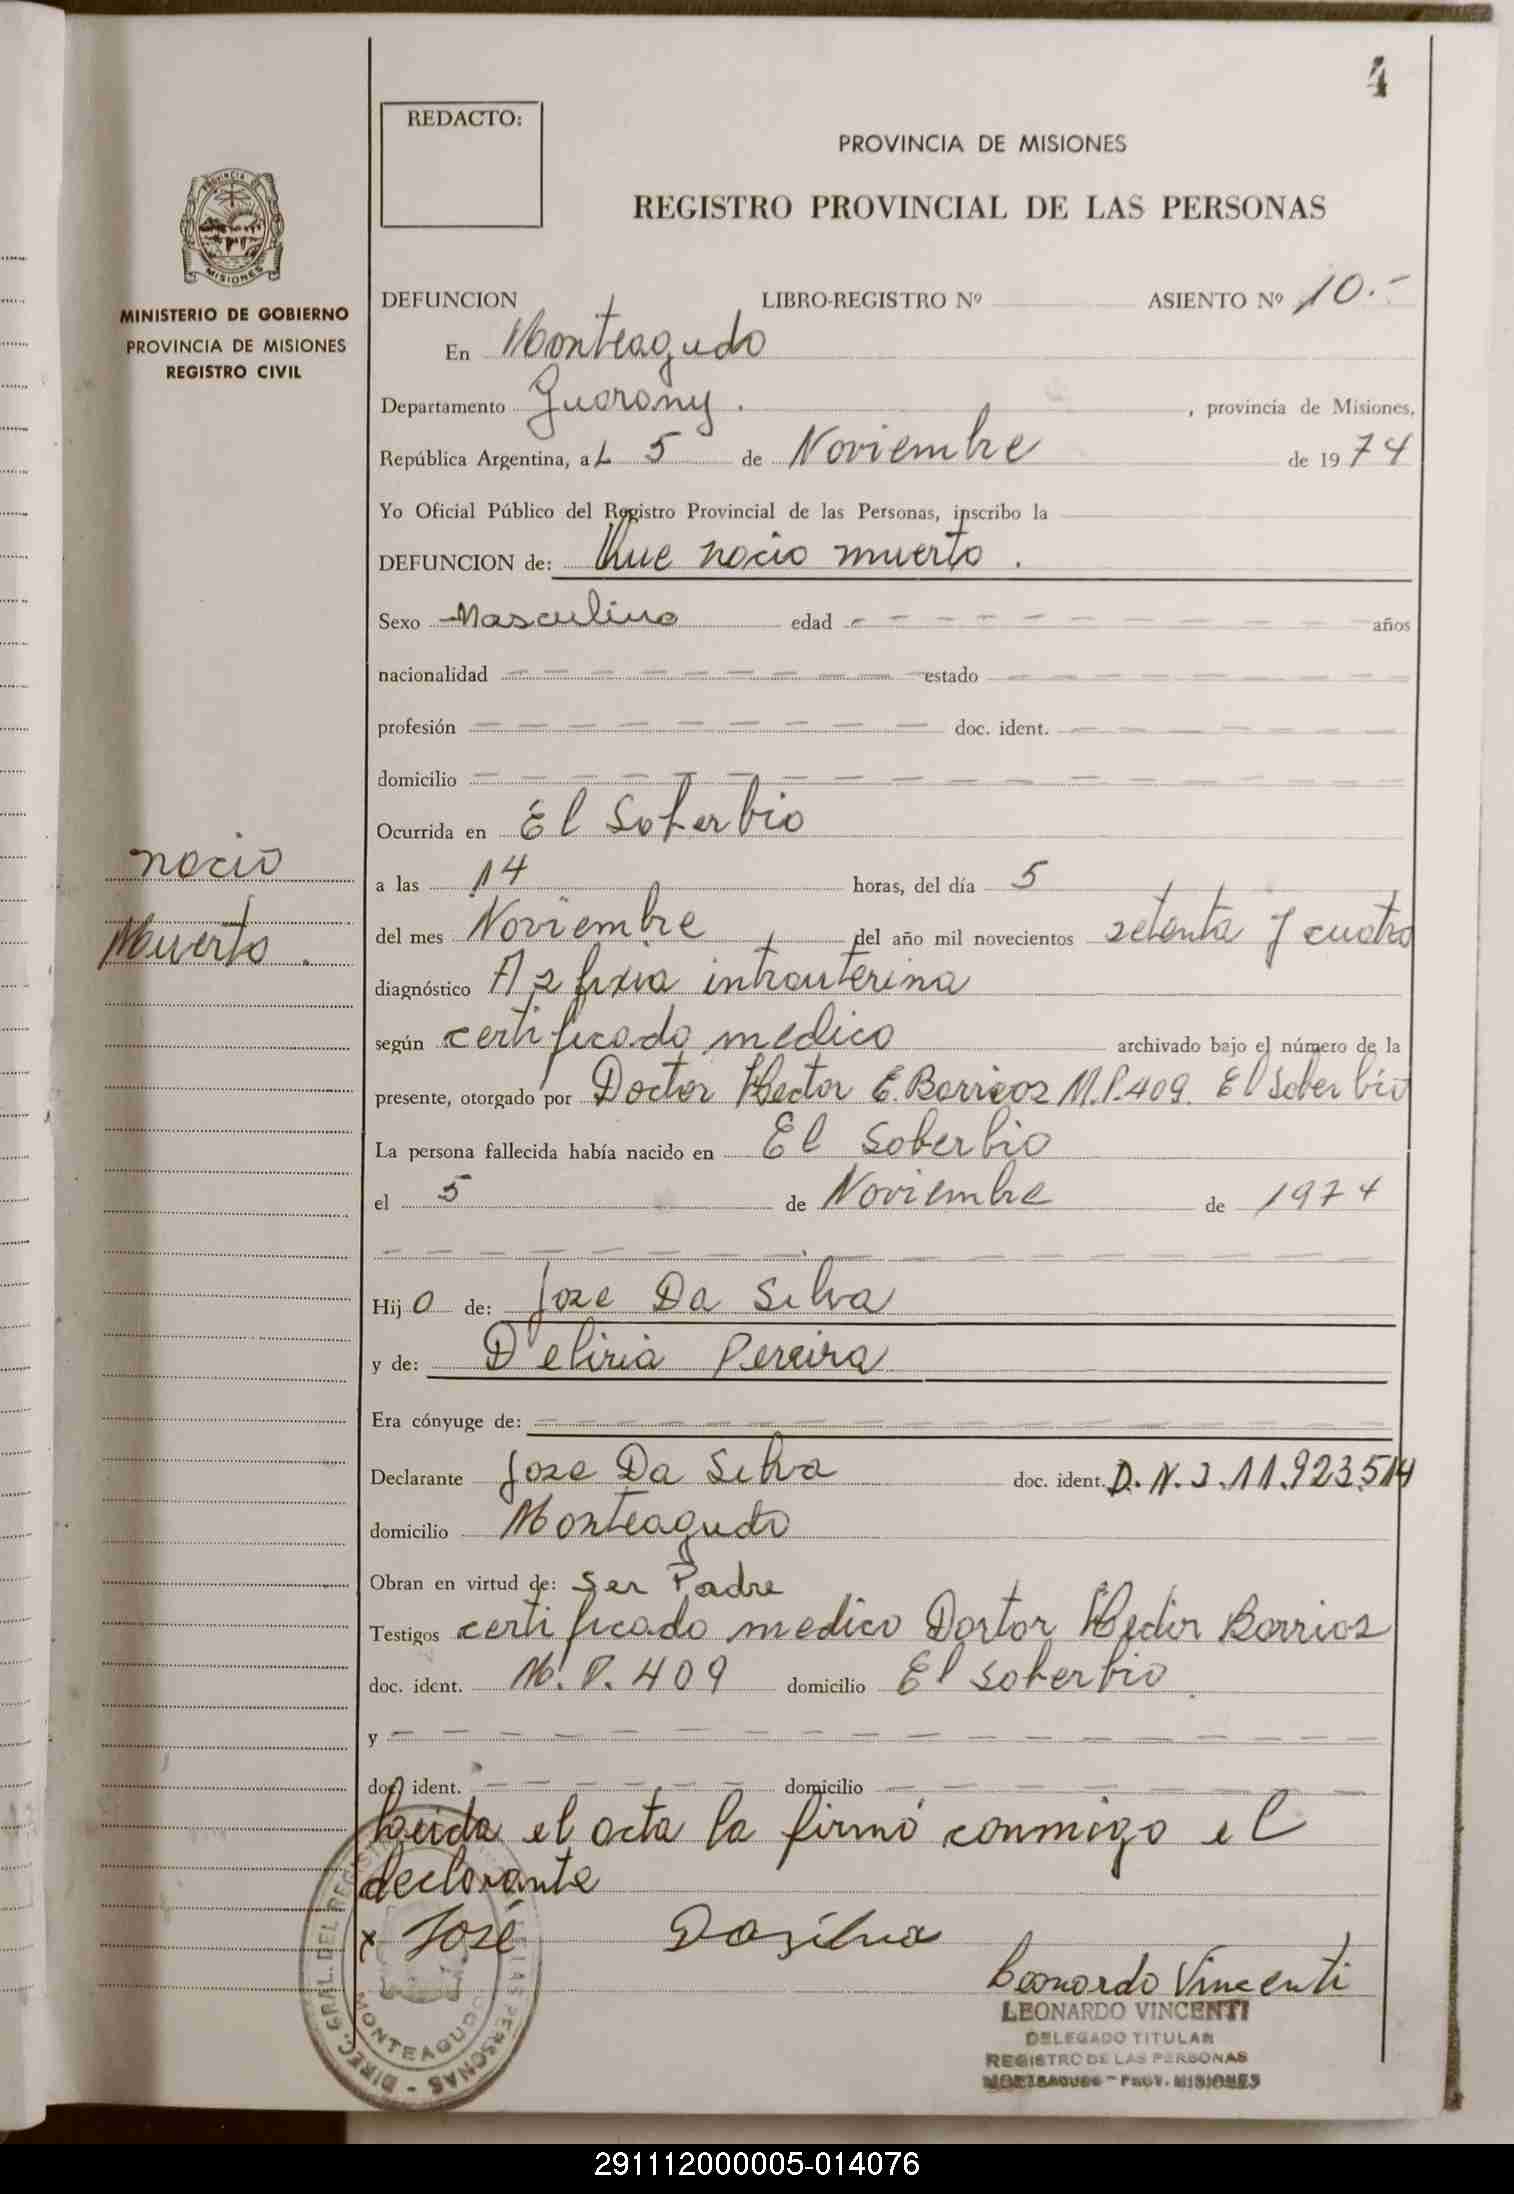 4
REDACTO:
PROVINCIA DE MISIONES
REGISTRO PROVINCIAL DE LAS PERSONAS
PROVINCIA DE
MISIONES
MINISTERIO DE GOBIERNO
PROVINCIA DE MISIONES
REGISTRO CIVIL
DEFUNCION LIBRO-REGISTRO Nº ASIENTO Nº 10.-
En Monteagudo
Departamento Guarany. , provincia de Misiones,
República Argentina, al 5 de Noviembre de 1974
Yo Oficial Público del Registro Provincial de las Personas, inscribo la
DEFUNCION de: Que nacio muerto.
Sexo Masculino edad años
nacionalidad estado
profesión doc. ident.
domicilio
Ocurrida en El Soberbio
nacio
a las 14 horas, del día 5
Muerto.
del mes Noviembre del año mil novecientos setenta y cuatro
diagnóstico Asfixia intrauterina
según certificado medico archivado bajo el número de la
presente, otorgado por Doctor Hector E. Barrios M.P.409. El Soberbio
La persona fallecida había nacido en El Soberbio
el 5 de Noviembre de 1974
Hijo de: Jose Da Silva
y de: Deliria Pereira
Era cónyuge de:
Declarante Jose Da Silva doc. ident. D.N.I.11.923.514
domicilio Monteagudo
Obran en virtud de: Ser Padre
Testigos certificado medico Doctor Hector Barrios
doc. ident. M.P.409 domicilio El Soberbio.
y
doc. ident. domicilio
Leida el acta la firmó conmigo el
declarante
x José Dasilva
Leonardo Vincenti
LEONARDO VINCENTI
DELEGADO TITULAR
REGISTRO DE LAS PERSONAS
MONTEAGUDO - PROV. MISIONES
DIREC. GRAL. DEL REGISTRO DE LAS PERSONAS
MONTEAGUDO
291112000005-014076